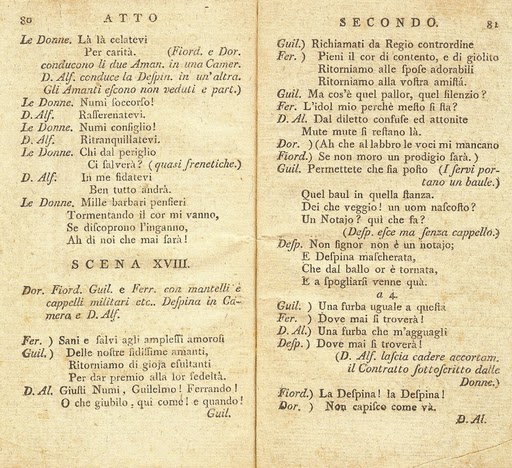 80 ATTO
Le Donne. Là là celatevi
Per carità. (Fiord. e Dor.
conducono li due Aman. in una Camer.
D. Alf. conduce la Despin. in un'altra.
Gli Amanti escono non veduti e part.)
Le Donne. Numi soccorso!
D. Alf. Rasserenatevi.
Le Donne. Numi consiglio!
D. Alf. Ritranquillatevi.
Le Donne. Chi dal periglio
Ci salverà? (quasi frenetiche.)
D. Alf. In me fidatevi
Ben tutto andrà.
Le Donne. Mille barbari pensieri
Tormentando il cor mi vanno,
Se discoprono l'inganno,
Ah di noi che mai sarà!
SCENA XVIII.
Dor. Fiord. Guil. e Ferr. con mantelli e
cappelli militari etc.. Despina in Ca-
mera e D. Alf.
Fer. ) Sani e salvi agli amplessi amorosi
Guil. ) Delle nostre fidissime amanti,
Ritorniamo di gioja esultanti
Per dar premio alla lor fedeltà.
D. Al. Giusti Numi, Guilelmo! Ferrando!
O che giubilo, qui come! e quando!
Guil.
SECONDO. 81
Guil.) Richiamati da Regio contrordine
Fer. ) Pieni il cor di contento, e di giolito
Ritorniamo alle spose adorabili
Ritorniamo alla vostra amistà.
Guil. Ma cos'è quel pallor, quel silenzio?
Fer. L'idol mio perchè mesto si sta?
D. Al. Dal diletto confuse ed attonite
Mute mute si restano là.
Dor. ) (Ah che al labbro le voci mi mancano
Fiord.) Se non moro un prodigio sarà. )
Guil. Permettete che sia posto (I servi por-
tano un baule.)
Quel baul in quella stanza.
Dei che veggio! un uom nascosto?
Un Notajo? qui che fa?
(Desp. esce ma senza cappello.)
Desp. Non signor non è un notajo;
E Despina mascherata,
Che dal ballo or è tornata,
E a spogliarsi venne quà.
a 4.
Guil. ) Una furba uguale a questa
Fer. ) Dove mai si troverà!
D. Al.) Una furba che m'agguagli
Desp.) Dove mai si troverà!
(D. Alf. lascia cadere accortam.
il Contratto sottoscritto dalle
Donne.)
Fiord.) La Despina! la Despina!
Dor. ) Non capisco come và.
D. Al.